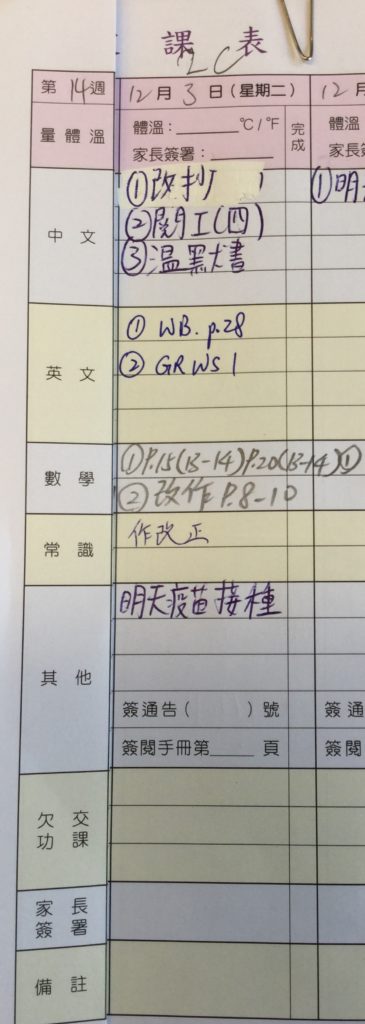 課 表
2C
第 14 週 12 月 3 日 (星期二) 12 月
量 體 溫 體溫：______ °C / °F 完成 體溫
家長簽署：______ 家長簽
中 文 ①改抄( ) ①明
②閱工(四)
③溫默書
英 文 ① WB. p.28
② GRWS 1
數 學 ①P.15(13-14)P.20(13-14) ①
②改作P.8-10
常 識 作改正
其 他 明天疫苗接種
簽通告 ( ) 號 簽通
簽閱手冊第____ 頁 簽閱
欠 交
功 課
家 長
簽 署
備 註